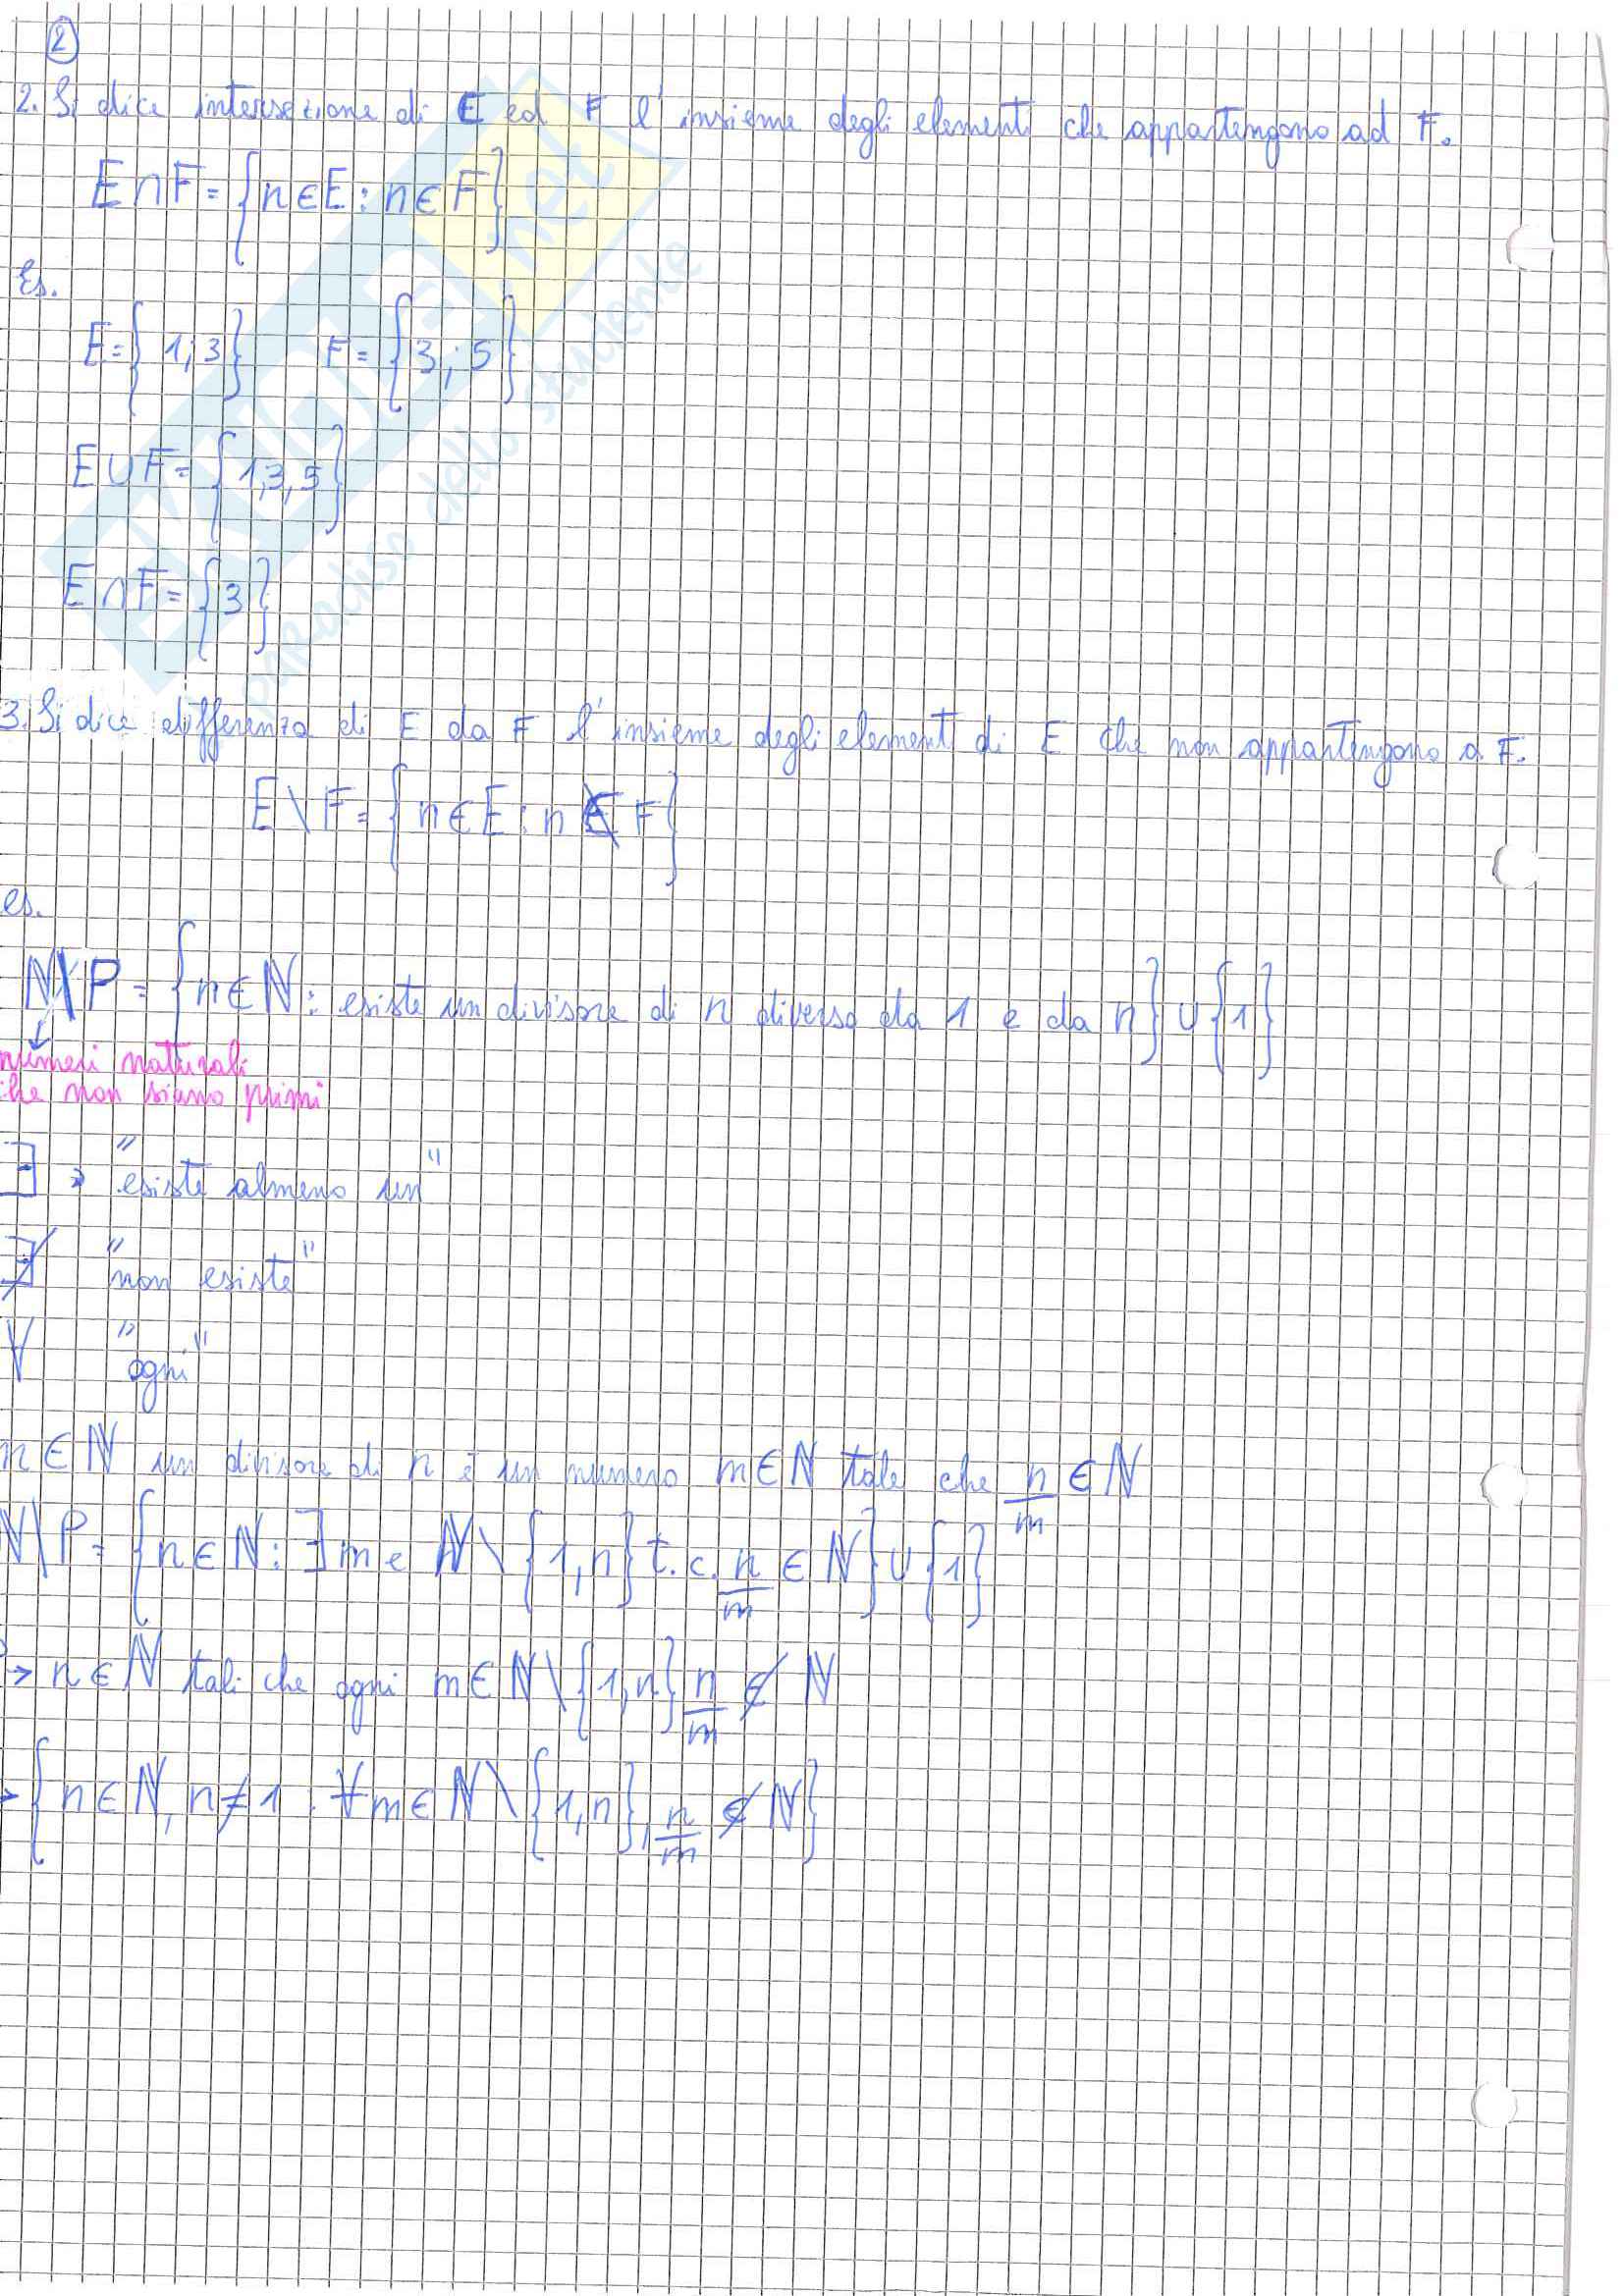 2
2. Si dice intersezione di E ed F l'insieme degli elementi che appartengono ad F.
E∩F = {n∈E : n∈F}
Es.
E = {1;3} F = {3;5}
E∪F = {1,3,5}
E∩F = {3}
3. Si dice differenza di E da F l'insieme degli elementi di E che non appartengono a F.
E\F = {n∈E : n∉F}
es.
ℕ\P = {n∈ℕ : esiste un divisore di n diverso da 1 e da n} ∪ {1}
numeri naturali
che non siano primi
∃ → "esiste almeno un"
∄ "non esiste"
∀ "ogni"
n∈ℕ un divisore di n è un numero m∈ℕ tale che n/m ∈ℕ
ℕ\P = {n∈ℕ : ∃ m∈ℕ\{1,n} t.c. n/m ∈ℕ} ∪ {1}
→ n∈ℕ tali che ogni m∈ℕ\{1,n} n/m ∉ ℕ
→ {n∈ℕ, n≠1 : ∀m∈ℕ\{1,n}, n/m ∉ ℕ}
SKUOLA.net
paradiso dello studente